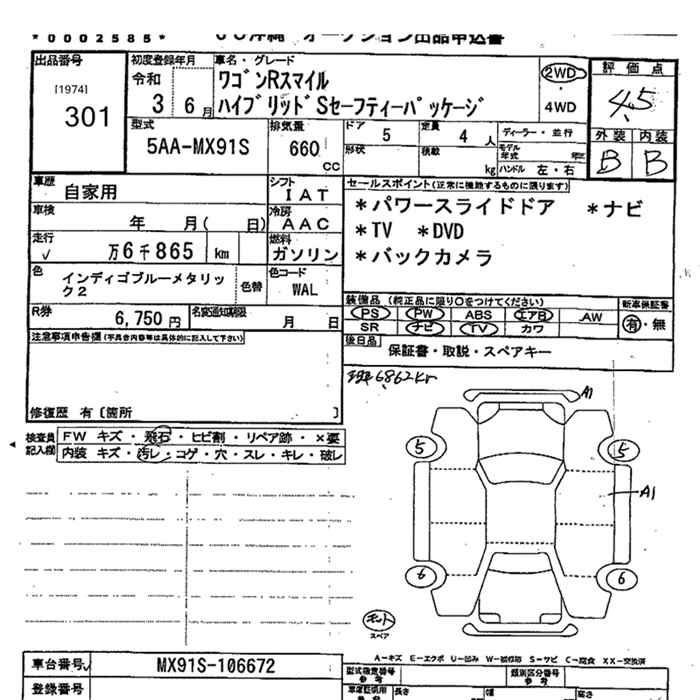 *0002585*
オークション出品申込書
出品番号
[1974]
301
初度登録年月
令和
3 6月
車名・グレード
ワゴンRスマイル
ハイブリッドSセーフティーパッケージ
2WD
・
4WD
評価点
4.5
外装 内装
B B
型式
5AA-MX91S
排気量
660
CC
ドア 5
形状
定員 4人
積載 kg
ディーラー・並行
モデル年式 年
ハンドル 左・右
車歴
自家用
シフト
IAT
車検
年 月( 日)
冷房
AAC
走行
✓ 万6千865 km
燃料
ガソリン
色
インディゴブルーメタリック2
色替
色コード
WAL
R券
6,750円
名変通知期限
月 日
セールスポイント(正常に機能するものに限ります)
*パワースライドドア *ナビ
*TV *DVD
*バックカメラ
装備品 (純正品に限り○をつけてください)
PS PW ABS エアB AW
SR ナビ TV カワ
新車保証書
有・無
後日品
保証書・取説・スペアキー
注意事項申告欄(不具合内容等は具体的に記入して下さい)
修復歴 有〔箇所 〕
現6862km
検査員記入欄
FW キズ・飛石・ヒビ割・リペア跡・×要
内装 キズ・汚レ・コゲ・穴・スレ・キレ・破レ
A1
5
5
A1
6
6
キット
スペア
A-キズ E-エクボ U-凹み W-補修跡 S-サビ C-腐食 XX-交換済
車台番号
MX91S-106672
登録番号
型式指定番号
参考
類別区分番号
参考
長さ
幅
高さ